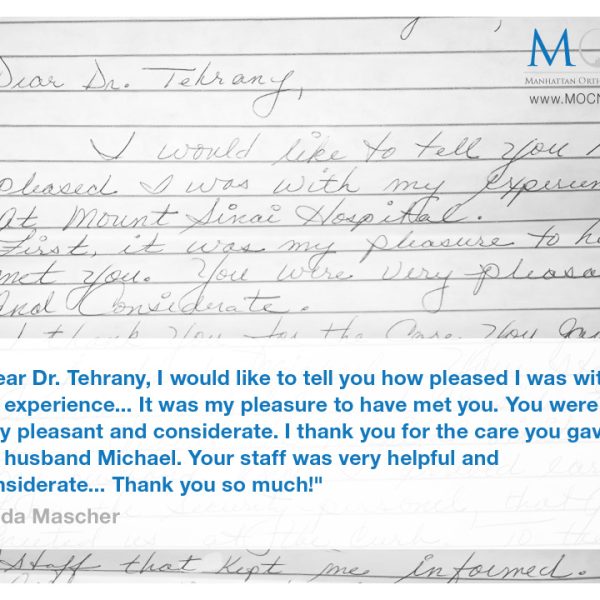 M
MANHATTAN ORTH
www.MOCN
Dear Dr. Tehrany,
I would like to tell you
pleased I was with my experien
At Mount Sinai Hospital.
First, it was my pleasure to ha
met you. You were very pleasa
And Considerate.
I thank you for the care you
ear Dr. Tehrany, I would like to tell you how pleased I was wit
experience... It was my pleasure to have met you. You were
y pleasant and considerate. I thank you for the care you gav
husband Michael. Your staff was very helpful and
nsiderate... Thank you so much!"
da Mascher
Staff that kept me informed.